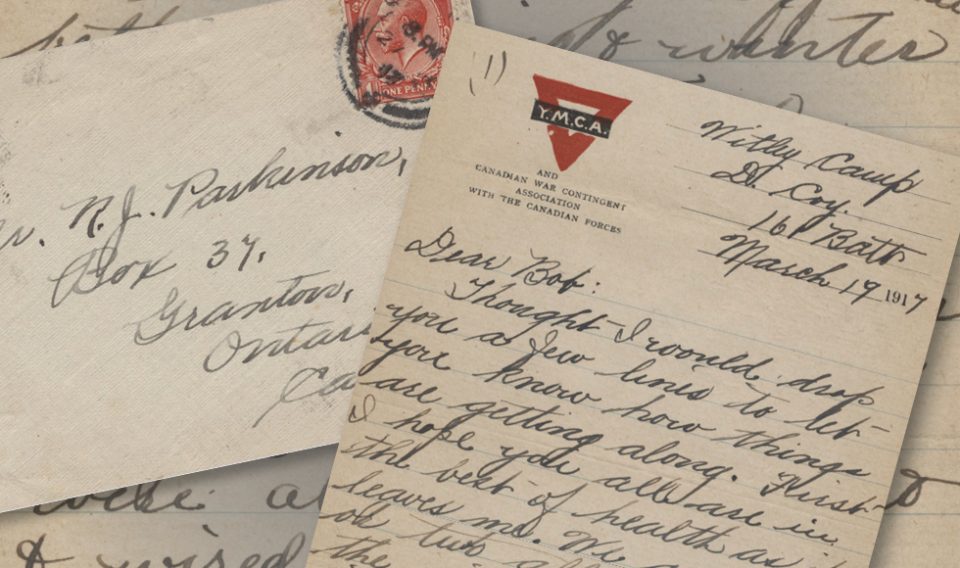 winter
ONE PENNY
R. J. Parkinson,
Box 37,
Granton,
Ontar
Ca
(1)
Y.M.C.A.
AND
CANADIAN WAR CONTINGENT
ASSOCIATION
WITH THE CANADIAN FORCES
Witley Camp
D. Coy.
161 Batt
March 19 1917
Dear Bob:
Thought I would drop
you a few lines to let
you know how things
are getting along. First
I hope you all are in
the best of health as
leaves me. We
the
& wired